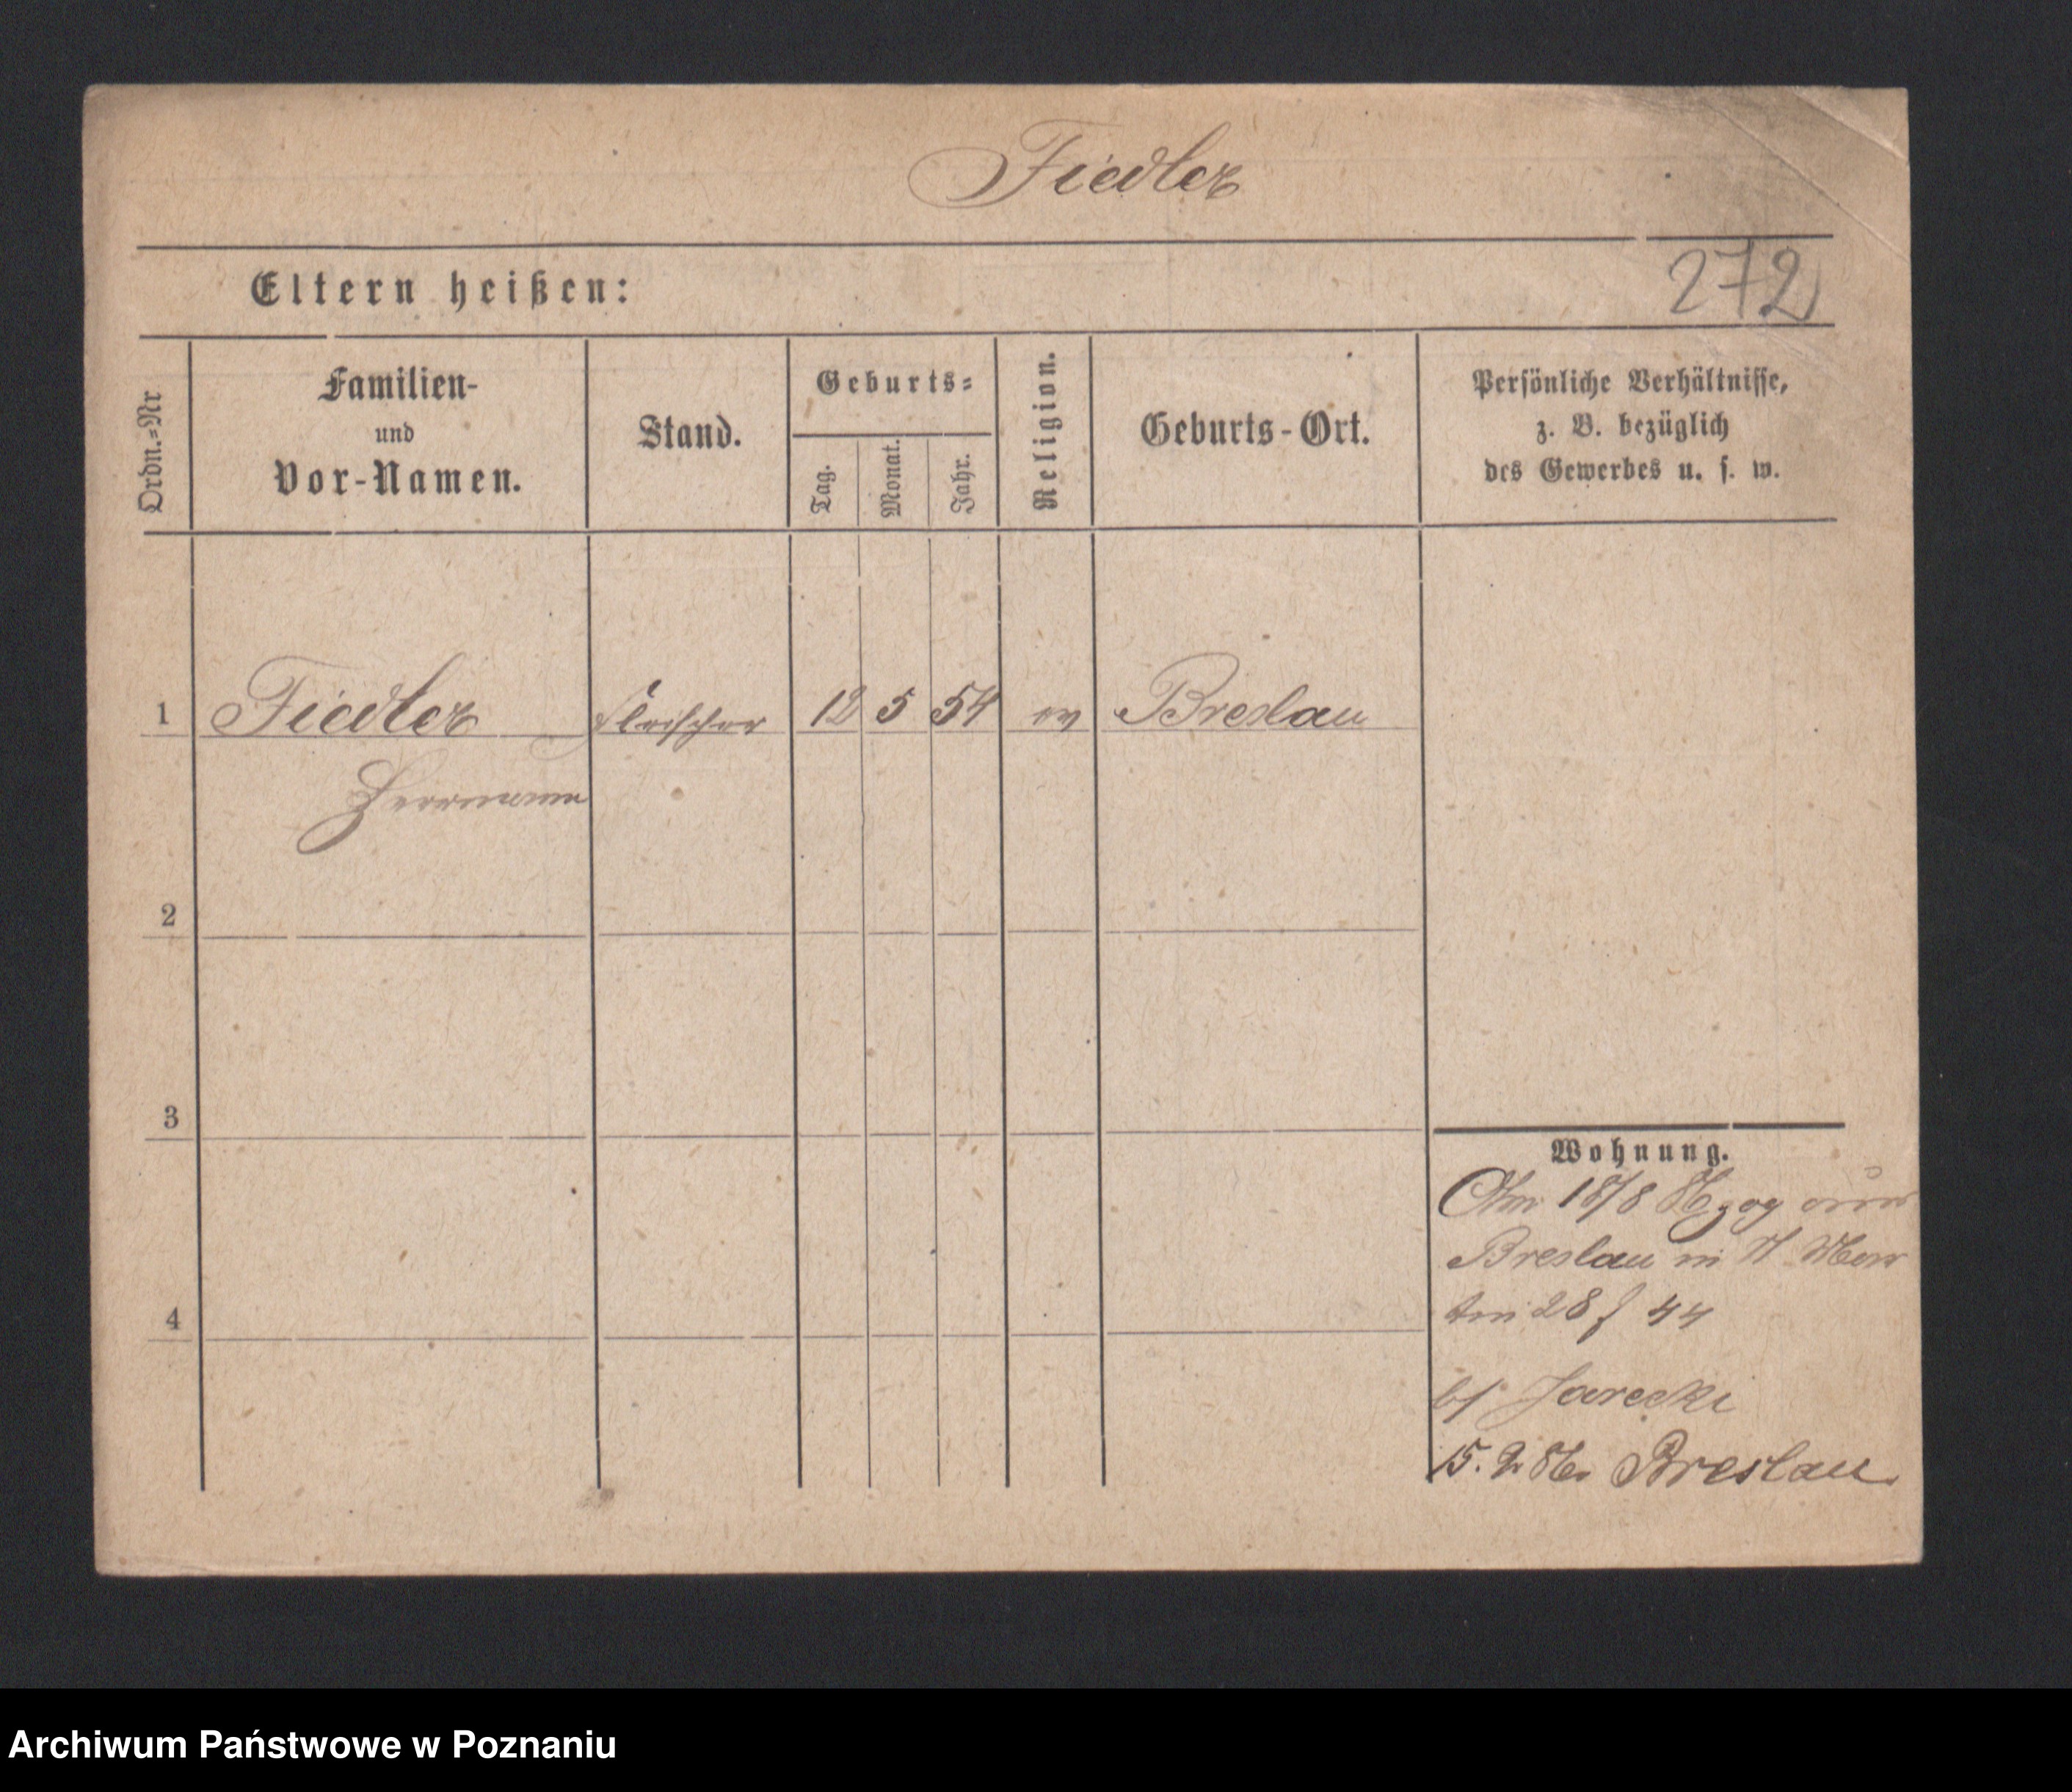 Fiedler
Eltern heißen:
272
Ordn.=Nr
Familien-
und
Vor-Namen.
Stand.
Geburts=
Tag.
Monat.
Jahr.
Religion.
Geburts-Ort.
Persönliche Verhältnisse,
z. B. bezüglich
des Gewerbes u. s. w.
1 Fiedler Fleischer 12 5 54 ev Breslau
Herrmann
2
3
4
Wohnung.
Am 18/8 86 zog aus
Breslau in
28 f 44
bf Jarecki
15. 9. 86. Breslau.
Archiwum Państwowe w Poznaniu